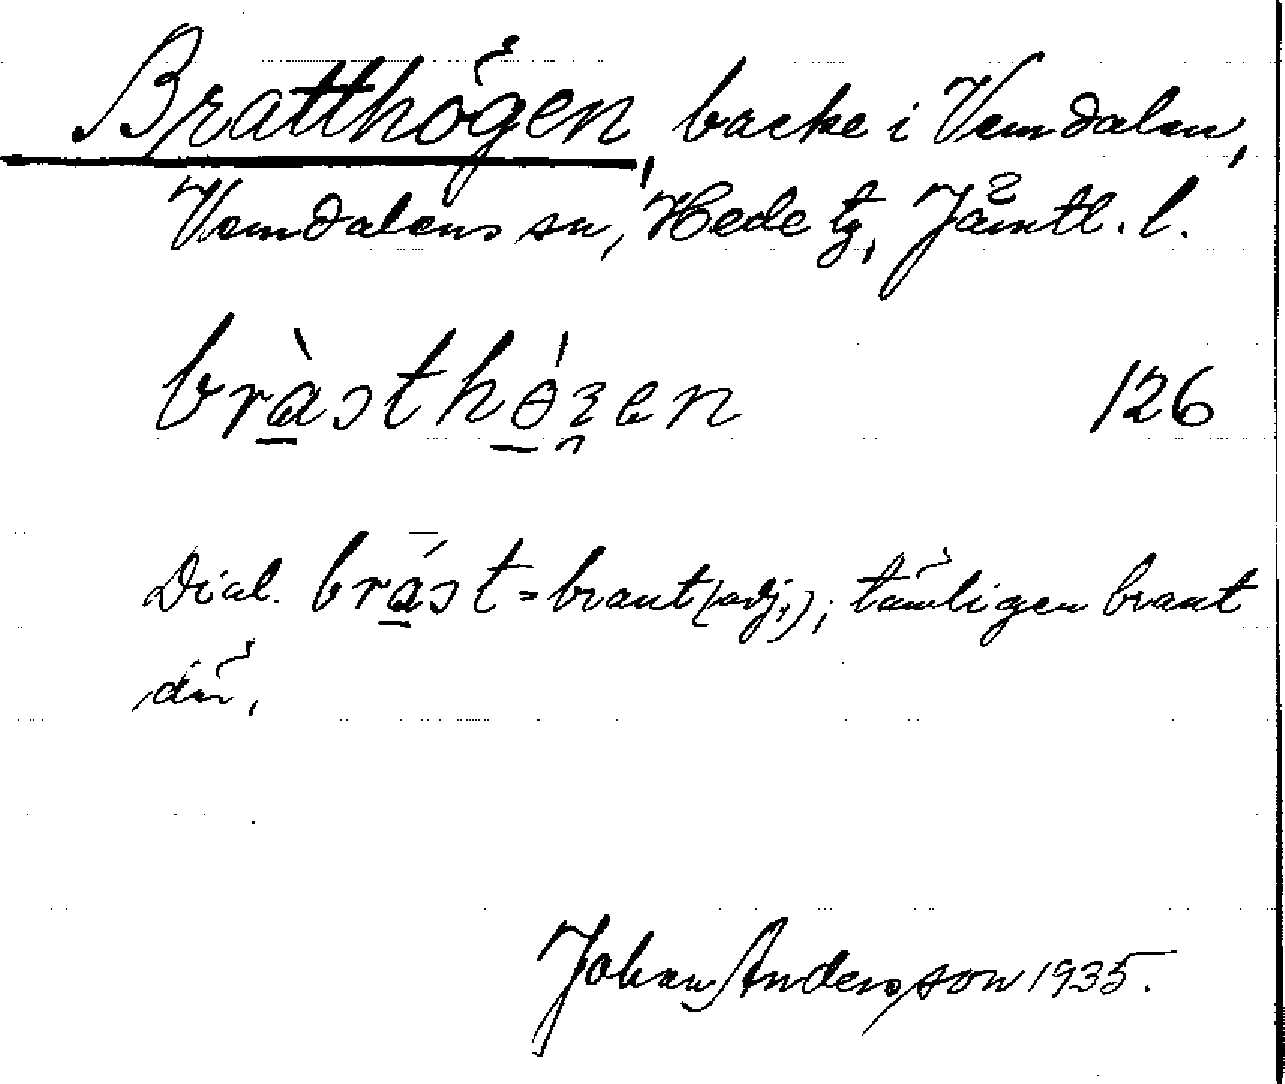 Bratthögen, backe i Vemdalen,
Vemdalens sn, Hede tg, Jämtl. l.
bràsthǿꜫen 126
Dial. brást = brant (adj.); tämligen brant
där.
Johan Andersson 1935.